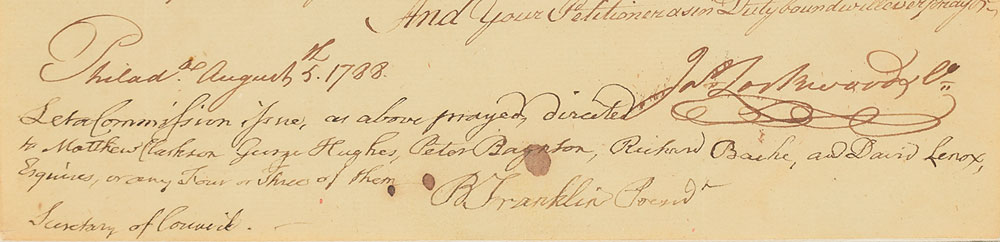 And Your Petitioner as in Duty bound will ever pray &c
Philad.a August 5.th 1788.
Jos. Lockwood & Co
Let a Commission issue, as above prayed, directed
to Matthew Clarkson George Hughes, Peter Baynton, Richard Bache, and David Lenox,
Esquires, or any Four or Three of them
B Franklin Presid.t
Secretary of Council.